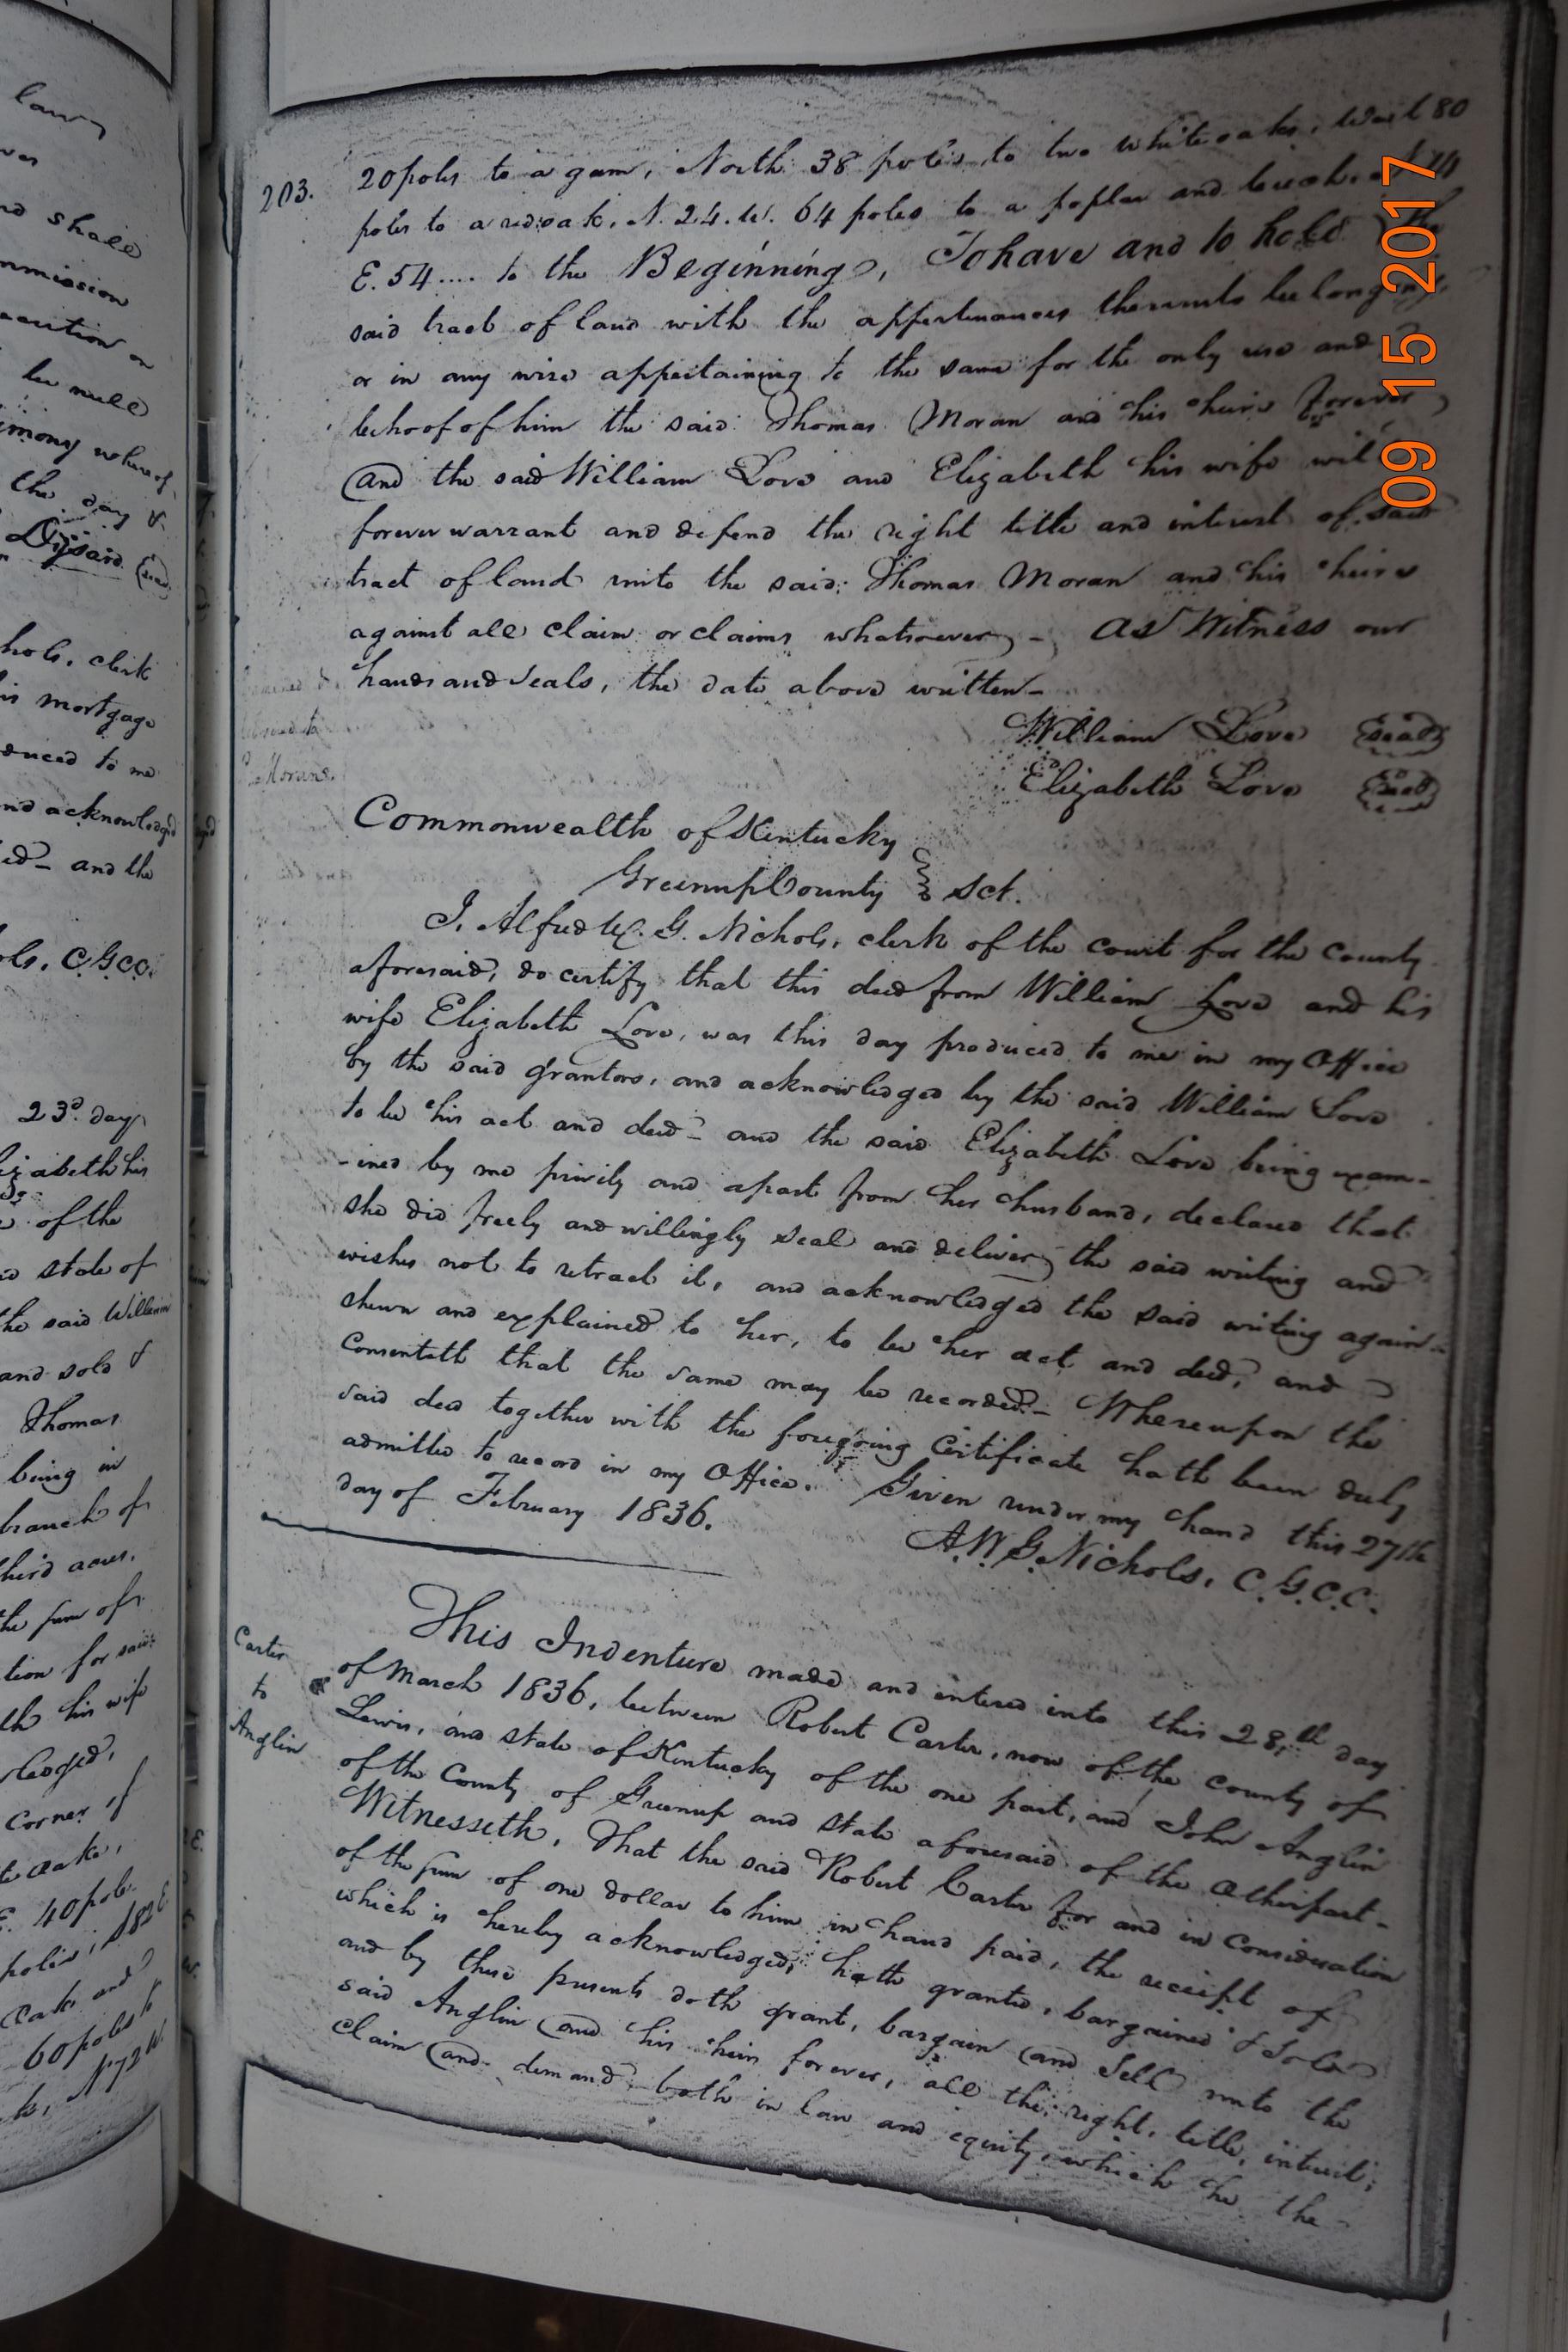 law
shall
mmission
be null
the day &
hols, clerk
is mortgage
duced to me
nd acknowledged
ed - and the
ols, C.G.C.C.
23d. day
izabeth his
of the
state of
the said William
and sold &
Thomas
being in
branch of
third acres,
the sum of
tion for said
th his wife
corner of
E. 40 pole
60 poles to
203.
20 poles to a gum, North 38 poles to two white oaks, West 80
poles to a redoak, N. 24. W. 64 poles to a poplar and beech,
E. 54.... to the Beginning, To have and to hold the
said tract of land with the appertenances thereunto belonging
or in any wise appertaining to the same for the only use and
behoof of him the said Thomas Moran and his heirs forever,
and the said William Love and Elizabeth his wife will
forever warrant and defend the right title and interest of said
tract of land unto the said Thomas Moran and his heirs
against all claim or claims whatsoever, - As Witness our
hands and seals, the date above written -
William Love (seal)
Elizabeth Love (seal)
Commonwealth of Kentucky
Greenup County } Sct.
I, Alfred W. G. Nichols, clerk of the court for the County
aforesaid, do certify that this deed from William Love and his
wife Elizabeth Love, was this day produced to me in my Office
by the said grantors, and acknowledged by the said William Love
to be his act and deed - and the said Elizabeth Love being exam-
-ined by me privily and apart from her husband, declared that
she did freely and willingly seal and deliver the said writing and
wishes not to retract it, and acknowledged the said writing again
shewn and explained to her, to be her act and deed, and
consenteth that the same may be recorded - Whereupon the
said deed together with the foregoing certificate hath been duly
admitted to record in my Office. Given under my hand this 27th
day of February 1836.
A.W.G. Nichols, C.G.C.C.
Carter
to
Anglin
This Indenture made and entered into this 28th day
of March 1836, between Robert Carter, now of the county of
Lewis, and state of Kentucky of the one part, and John Anglin
of the County of Greenup and state aforesaid of the other part -
Witnesseth, That the said Robert Carter for and in consideration
of the sum of one dollar to him in hand paid, the receipt of
which is hereby acknowledged, hath granted, bargained & Sold
and by these presents doth grant, bargain and Sell unto the
said Anglin and his heirs forever, all the right, title, interest,
claim and demand both in law and equity, which he the -
09 15 2017